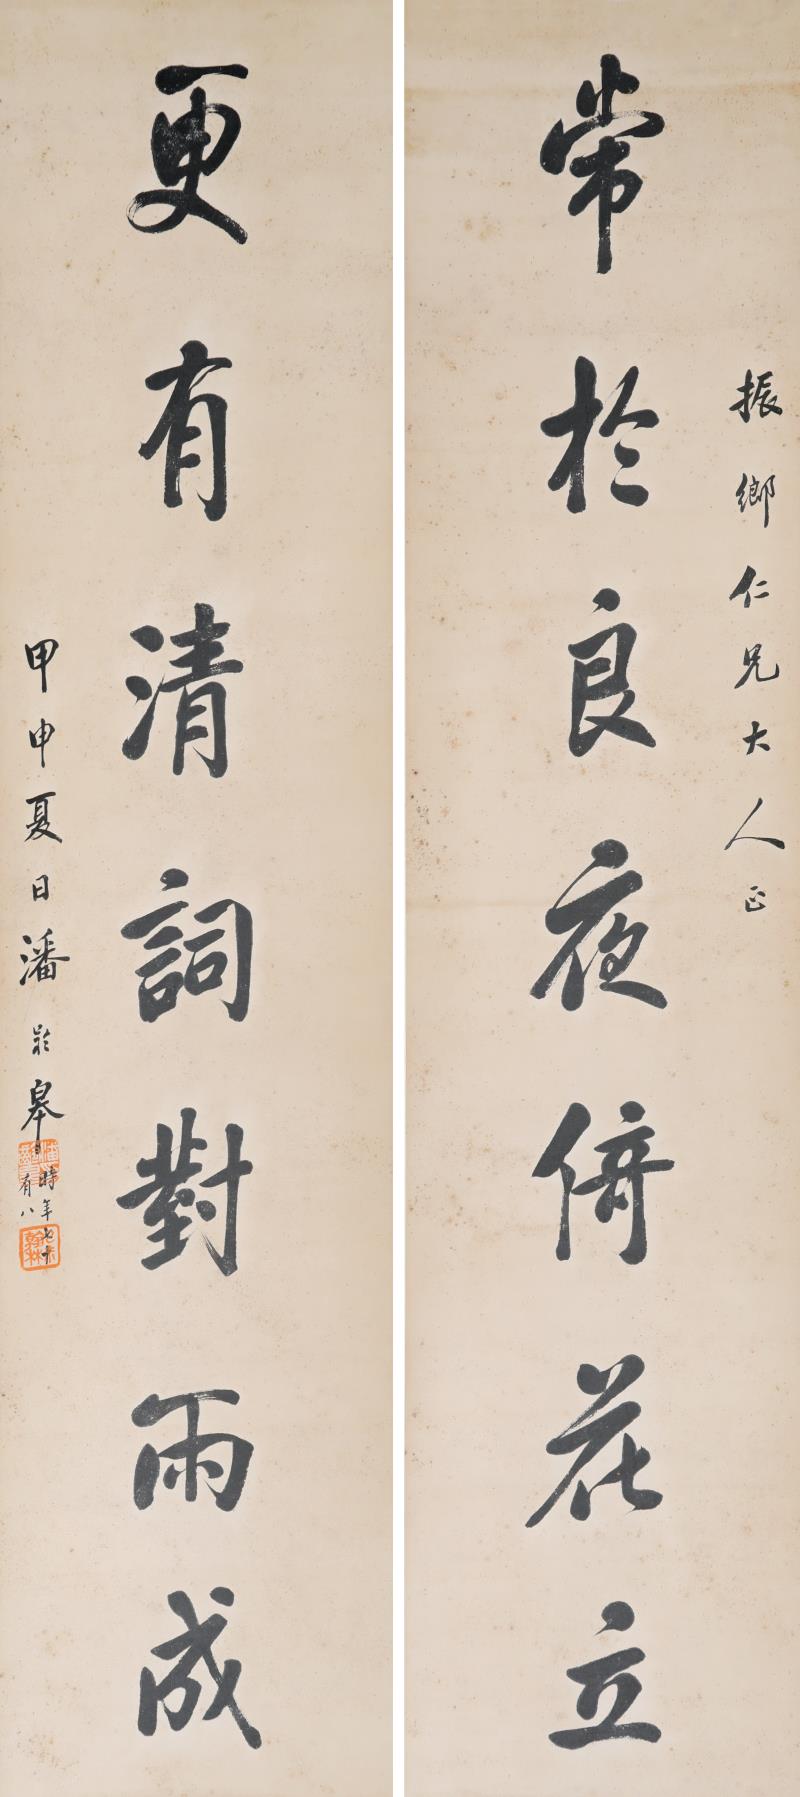 振鄉仁兄大人正
常於良夜倚花立
更有清詞對雨成
甲申夏日潘齡皋
時年七十
有八